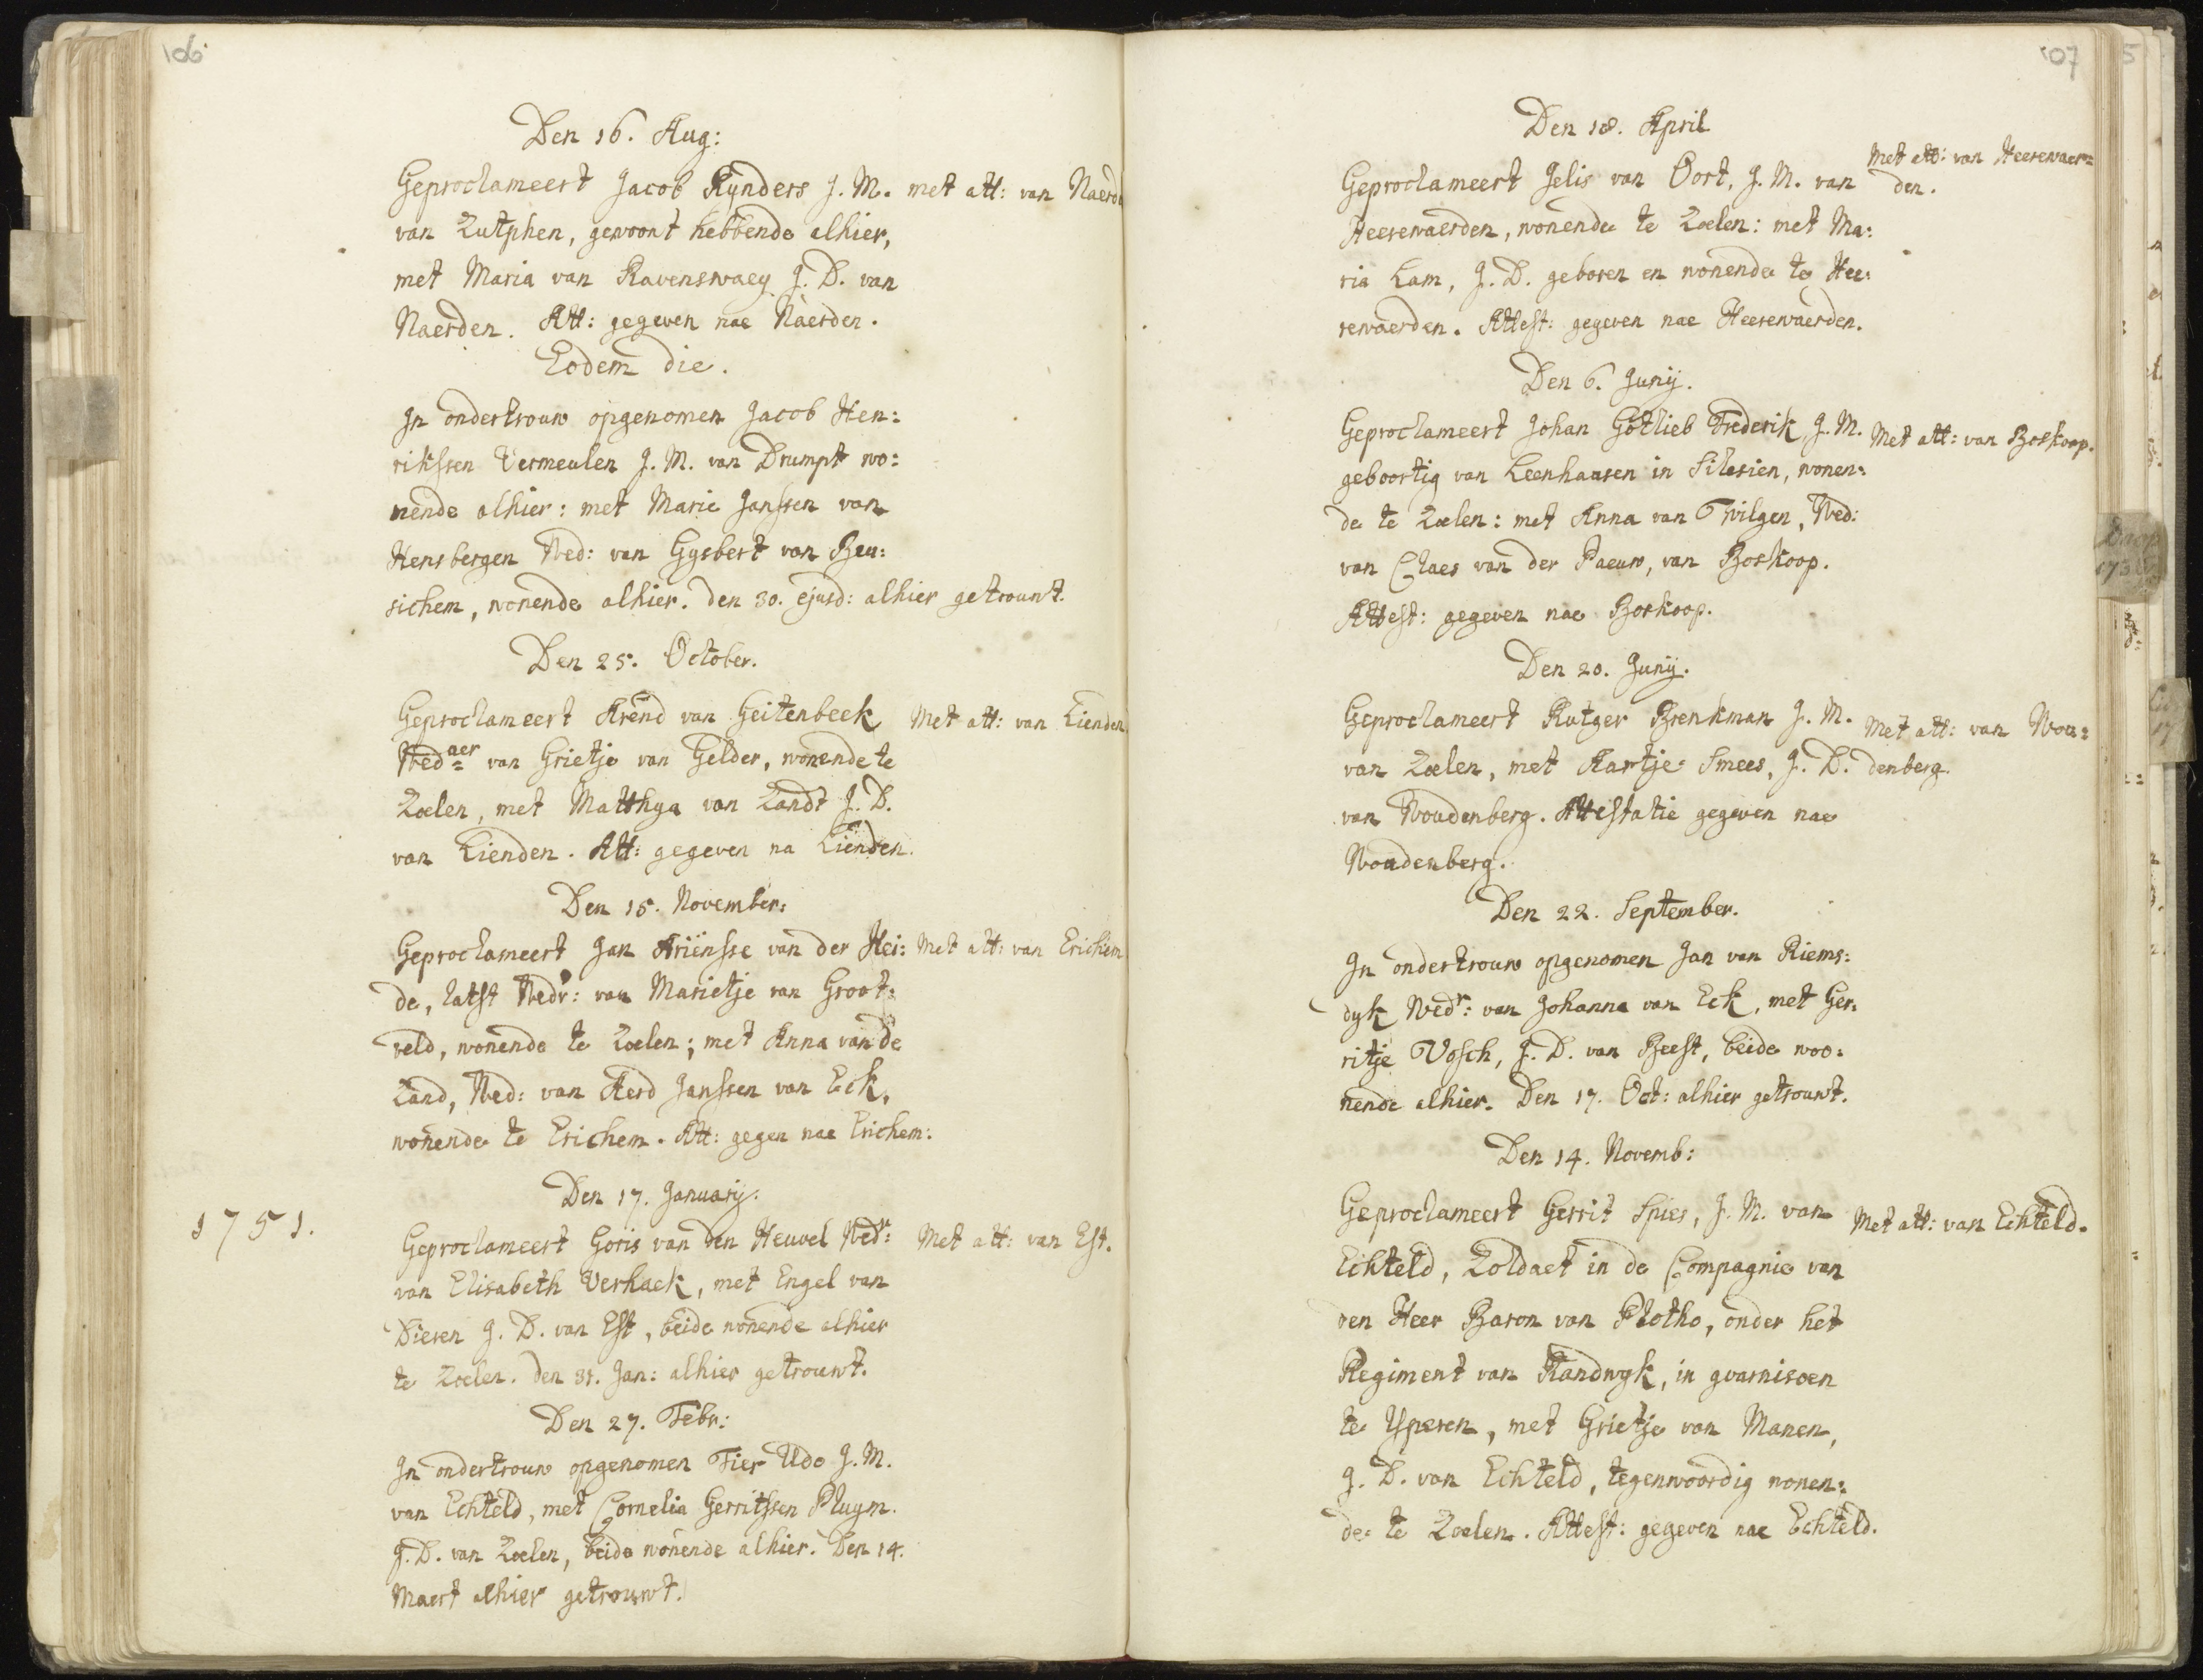 106.
Den 16. Aug:
Geproclameert Jacob Rynders J. M. met att: van Naerd
van Zutphen, gewoont hebbende alhier,
met Maria van Ravenswaey J. D. van
Naerden. Att: gegeven nae Naerden.
Eodem die.
In ondertrouw opgenomen Jacob Hen:
rikssen Vermeulen J. M. van Drumpt wo:
nende alhier: met Marie Janssen van
Hensbergen Wed: van Gysbert van Beu:
sichem, wonende alhier. den 30. ejusd: alhier getrouwt.
Den 25. October.
Geproclameert Arend van Geitenbeek Met att: van Lienden
Wed:aer van Grietje van Gelder, wonende te
Zoelen, met Matthya van Zandt J. D.
van Lienden. Att: gegeven na Lienden.
Den 15. November:
Geproclameert Jan Ariënsse van der Hei: Met att: van Erichem
de, latst Wedr: van Marietje van Groot:
veld, wonende te Zoelen; met Anna van de
Zand, Wed: van Aerd Janssen van Eck,
wonende te Erichem. Att: gegen nae Erichem:
Den 17. January.
1751.
Geproclameert Goris van den Heuvel Wedr: Met att: van Est.
van Elisabeth Verhaek, met Engel van
Dieren J. D. van Est, beide wonende alhier
te Zoelen. den 31. Jan: alhier getrouwt.
Den 27. Febr:
In ondertrouw opgenomen Tier Udo J. M.
van Echteld, met Cornelia Gerritssen Pluym.
J. D. van Zoelen, beide wonende alhier. Den 14.
Maert alhier getrouwt.
107
Den 18. April
Geproclameert Jelis van Oort, J. M. van Met att: van Heerewaer=
Heerewaerden, wonende te Zoelen: met Ma: den.
ria Lam, J. D. geboren en wonende te Hee:
rewaerden. Attest: gegeven nae Heerewaerden.
Den 6. Junij.
Geproclameert Johan Gotlieb Frederik, J. M. Met att: van Boskoop.
geboortig van Leenhausen in Silesien, wonen:
de te Zoelen: met Anna van Twilgen, Wed:
van Claes van der Paeuw, van Boskoop.
Attest: gegeven nae Boskoop.
Den 20. Junij.
Geproclameert Rutger Brenkman J. M. Met att: van Wou:
van Zoelen, met Aartje Smees, J. D. denberg.
van Woudenberg. Attestatie gegeven nae
Woudenberg.
Den 22. September.
In ondertrouw opgenomen Jan van Riems:
dyk Wedr: van Johanna van Eck, met Ger:
ritje Vosch, J. D. van Beest, beide woo:
nende alhier. Den 17. Oct: alhier getrouwt.
Den 14. Novemb:
Geproclameert Gerrit Spies, J. M. van Met att: van Echteld.
Echteld, Zoldaet in de Compagnie van
den Heer Baron van Plotho, onder het
Regiment van Randwyk, in guarnisoen
te Yperen, met Grietje van Manen,
J. D. van Echteld, tegenwoordig wonen:
de te Zoelen. Attest: gegeven nae Echteld.